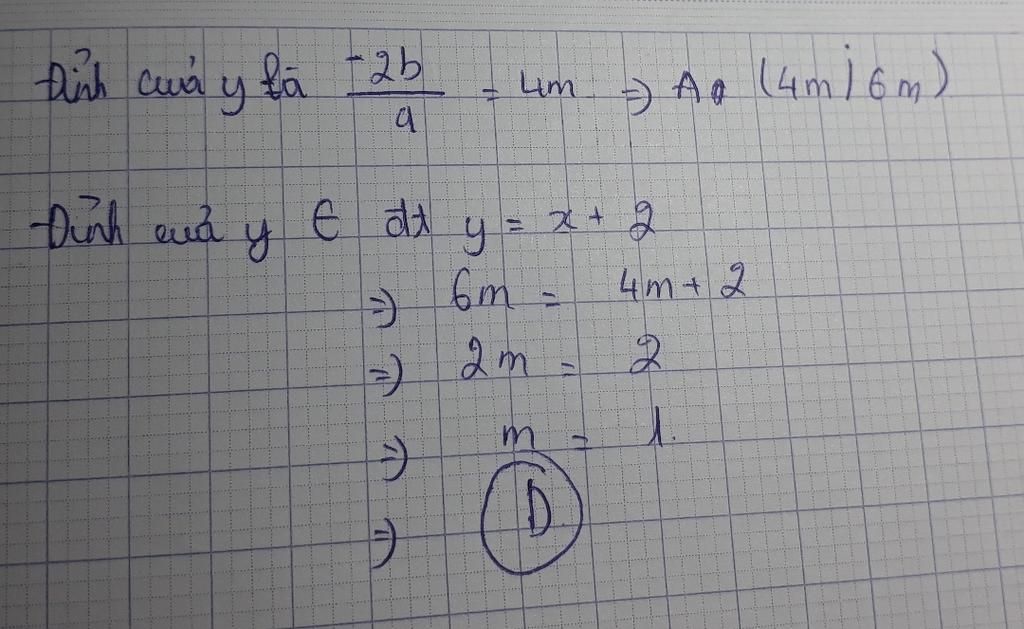 Đỉnh của y là -2b/a = 4m => A (4m; 6m)
Đỉnh của y ∈ đt y = x + 2
=> 6m = 4m + 2
=> 2m = 2
=> m = 1.
=> D